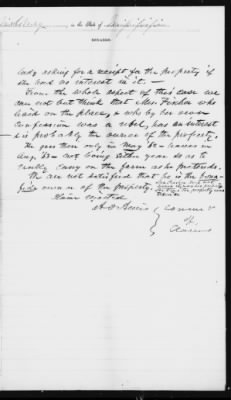 Vicksburg in the State of Mississippi
REMARKS.
lady asking for a receipt for the property if
she had no interest in it.
From the whole aspect of this case we
can not but think that Mrs. Fisher who
lived on the place, & who by her own
confession was a rebel, has an interest
& is probably the owner of the property.
He goes there only in May 63 – leaves in
Aug. 63 – not being there year so as to
really carry on the farm as he pretends.
We are not satisfied that he is the bona
fide owner of the property.
Claim rejected
A O Aldis
Comrs
of
Claims